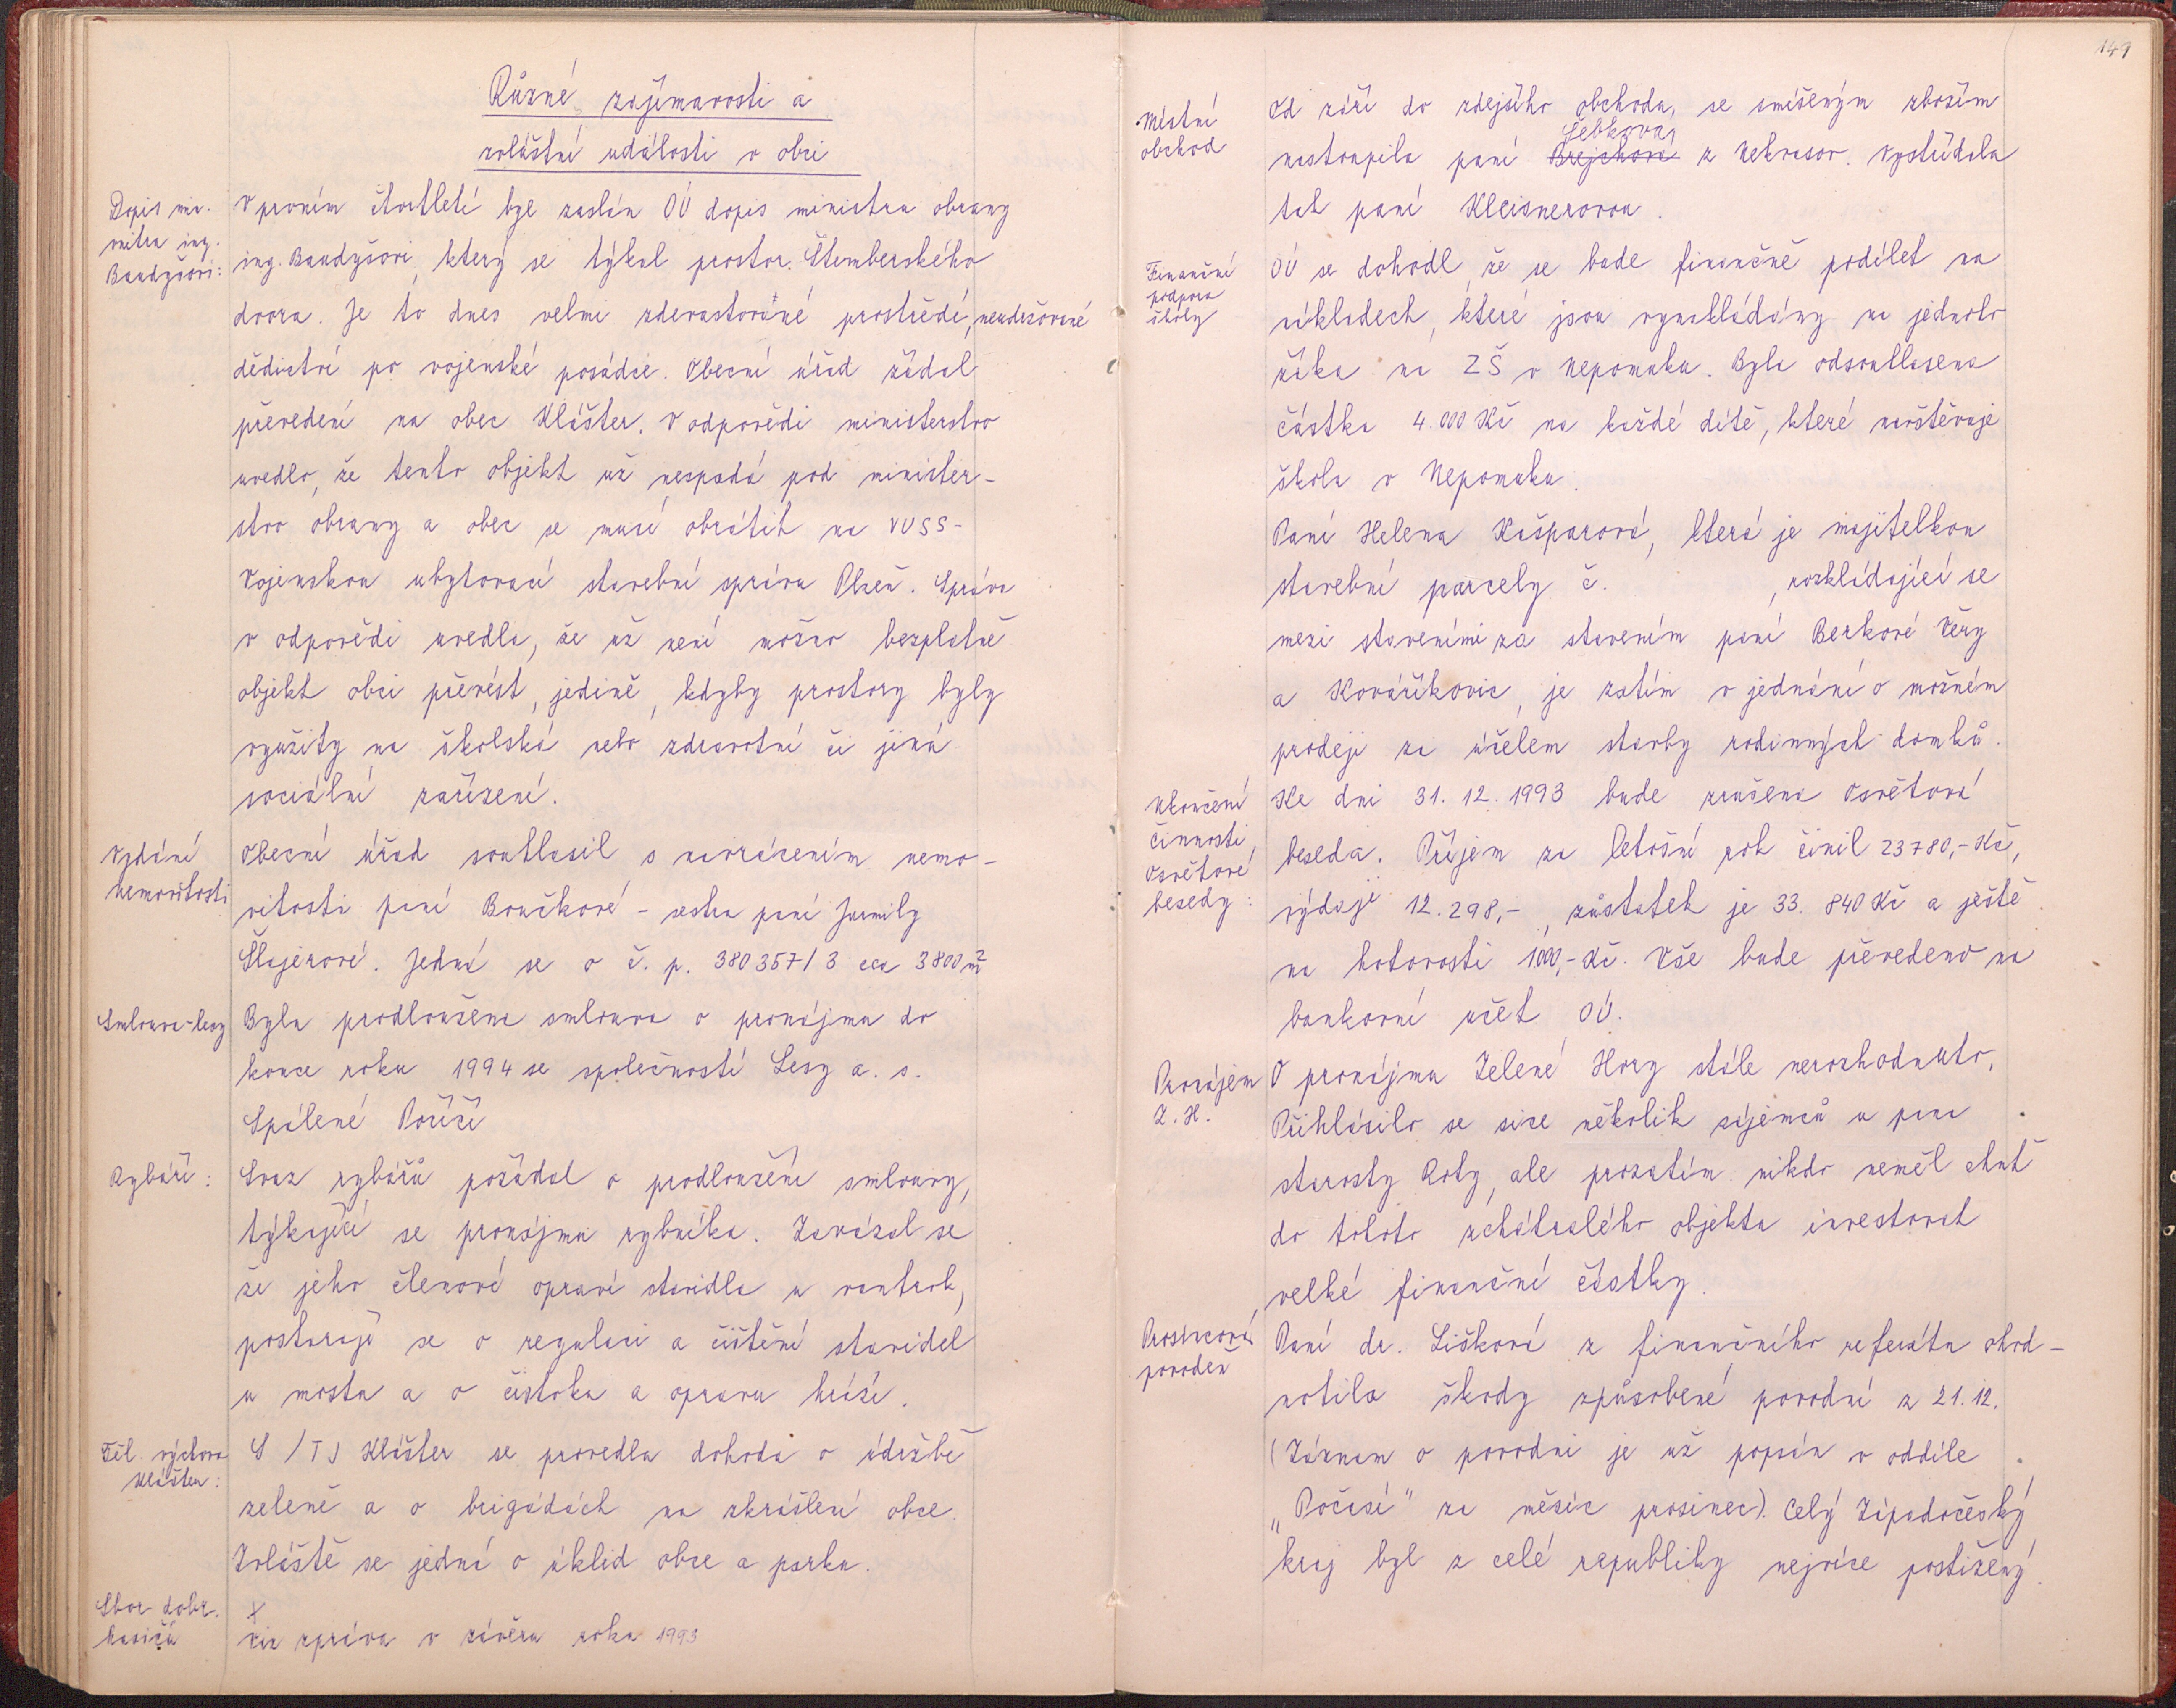 Různé zajímavosti a
zvláštní události v obci
Dopis min.
nistru ing.
Baudyšovi:
V prvním čtvrtletí byl zaslán OÚ dopis ministru obrany
ing. Baudyšovi, který se týkal prostor. Štemberského
dvora. Je to dnes velmi zdevastované prostředí, neudržované
dědictví po vojenské posádce. Obecní úřad žádal
převedení na obec Klášter. V odpovědi ministerstvo
uvedlo, že tento objekt už nespadá pod minister-
stvo obrany a obec se musí obrátit na VUSS-
Vojenskou ubytovací stavební správu Plzeň. Správa
v odpovědi uvedla, že už není možno bezplatně
objekt obci převést, jedině, kdyby prostory byly
využity na školská nebo zdravotní či jiná
sociální zařízení.
Vydání
nemovitosti
Obecní úřad souhlasil s navrácením nemo-
vitosti paní Boučkové - sestra paní Jarmily
Šlajerové. Jedná se o č. p. 380 357/3 cca 3800 m²
Smlouva-lesy
Byla prodloužena smlouva o pronájmu do
konce roku 1994 se společností Lesy a. s.
Spálené Poříčí
Rybáři:
Svaz rybářů požádal o prodloužení smlouvy,
týkající se pronájmu rybníka. Zavázal se
že jeho členové opraví stavidla u vantrok,
postarají se o regulaci a čištění stavidel
u mostu a o čistoku a opravu hrází.
Těl. výchova
Klášter:
S /TJ Klášter se provedla dohoda o údržbě
zeleně a o brigádách na zkrášlení obce.
Zvláště se jedná o úklid obce a parku.
Sbor dobr.
hasičů
x
Viz zpráva v závěru roku 1993
149
Místní
obchod
Od září do zdejšího obchodu, se smíšeným zbožím
Šebkova
nastoupila paní Brejchová z Nekvasov. Vystřídala
tak paní Kleisnerovou.
Finanční
podpora
školy
OÚ se dohodl, že se bude finančně podílet na
nákladech, které jsou vynakládány na jednoho
žáka na ZŠ v Nepomuku. Byla odsouhlasena
částka 4.000 Kč na každé dítě, které navštěvuje
školu v Nepomuku.
Paní Helena Kašparová, která je majitelkou
stavební parcely č. , rozkládající se
mezi staveními za stavením paní Berkové Věry
a Kováříkovic, je zatím v jednání o možném
prodeji za účelem stavby rodinných domků.
Ukončení
činnosti
Osvětové
besedy:
Ke dni 31. 12. 1993 bude zrušena Osvětová
beseda. Příjem za letošní rok činil 23780,- Kč,
výdaje 12.298,-, zůstatek je 33. 840 Kč a ještě
na hotovosti 1000,- Kč. Vše bude převedeno na
bankovní účet OÚ.
Pronájem
Z. H.
O pronájmu Zelené Hory stále nerozhodnuto.
Přihlásilo se sice několik zájemců u pana
starosty Roty, ale prozatím nikdo neměl chuť
do tohoto zchátralého objektu investovat
velké finanční částky.
Prosincová
povodeň
Paní dr. Lišková z finančního referátu ohod-
notila škody způsobené povodní z 21. 12.
(Záznam o povodni je už popsán v oddíle
„Počasí" za měsíc prosinec). Celý Západočeský
kraj byl z celé republiky nejvíce postižený.